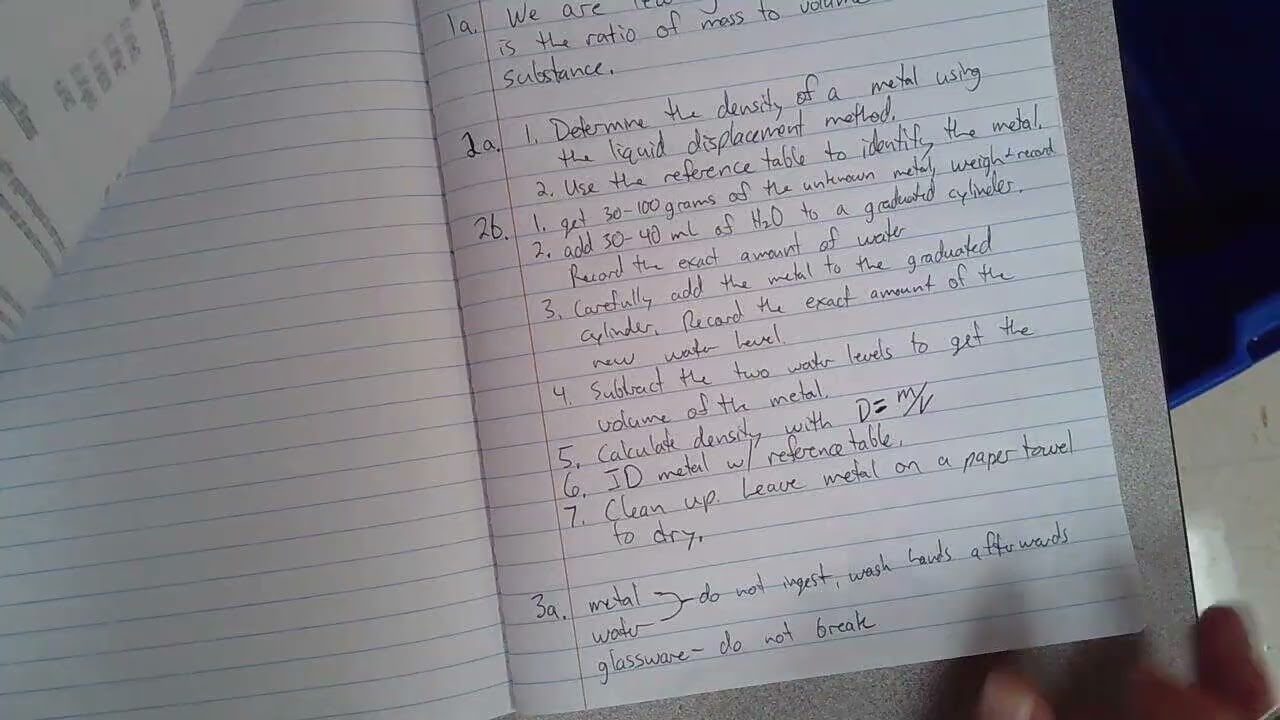 1a. We are
is the ratio of mass to volume
substance.
2a. 1. Determine the density of a metal using
the liquid displacement method.
2. Use the reference table to identify the metal.
2b. 1. get 30-100 grams of the unknown metal, weigh + record
2. add 30-40 ml of H2O to a graduated cylinder.
Record the exact amount of water
3. Carefully add the metal to the graduated
cylinder. Record the exact amount of the
new water level.
4. Subtract the two water levels to get the
volume of the metal.
5. Calculate density with D = m/V
6. ID metal w/ reference table.
7. Clean up. Leave metal on a paper towel
to dry.
3a. metal } do not ingest, wash hands afterwards
water
glassware - do not break